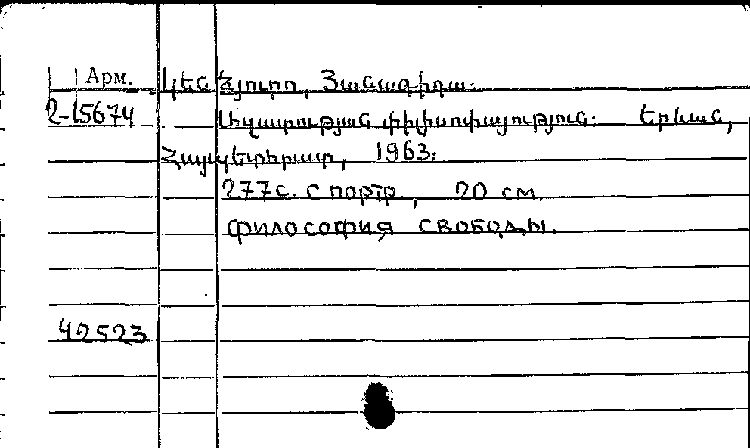 Арм. Կեն Ձյուրո, Յանագիդա:
2-15674 Ազատության փիլիսոփայություն: Երևան,
Հայպետհրատ, 1963:
277с. с портр., 20 см.
Философия свободы.
42523